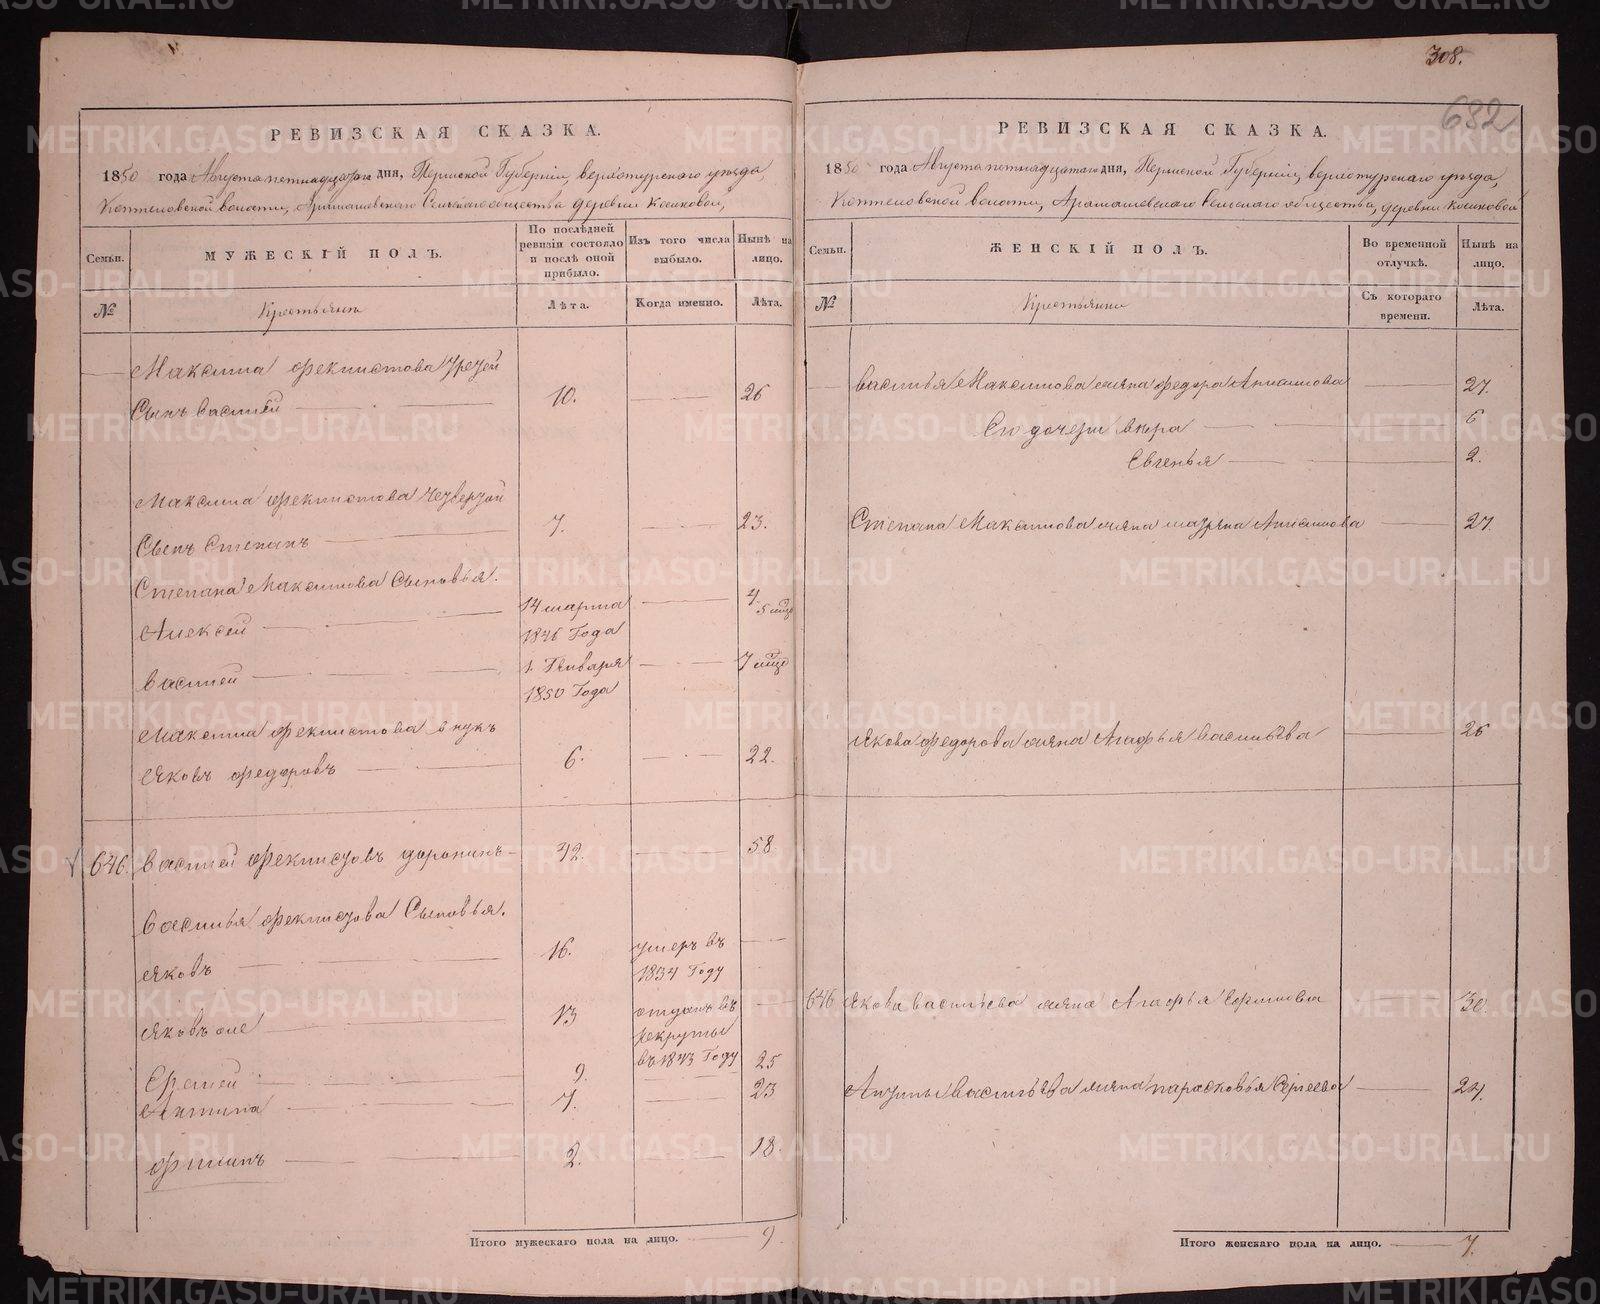 308.
632
РЕВИЗСКАЯ СКАЗКА.
1850 года Августа петнадцатаго дня, Пермской Губерніи, верхотурскаго уѣзда,
Коптеловской волости, Арамашевскаго Сельскаго общества деревни Косиковой,
Семьи. МУЖЕСКІЙ ПОЛЪ. По послѣдней ревизіи состояло и послѣ оной прибыло. Изъ того числа выбыло. Нынѣ на лицо.
№ Крестьянъ Лѣта. Когда именно. Лѣта.
Максима Феклистова Третей
Сынъ Василей 10. 26
Максима Феклистова Четвертой
Сынъ Степанъ 7. 23.
Степана Максимова Сыновья.
Алексей 14 марта 1846 Года 4. 5 мцъ
Василей 1. Генваря 1850 Года 7 мцъ
Максима Феклистова внукъ
Яковъ Федоровъ 6. 22.
646. Василей Феклистовъ доронинъ 42. 58.
Василья Феклистова Сыновья.
Яковъ 16. умеръ въ 1834 Году
Яковъ же 13 отданъ въ рекруты въ 1843 Году
Еремей 9. 25
Антипа 7. 23
Филипъ 2. 18.
Итого мужескаго пола на лицо. 9
РЕВИЗСКАЯ СКАЗКА.
1850 года Августа петнадцатаго дня, Пермской Губерніи, верхотурскаго уѣзда,
Коптеловской волости, Арамашевскаго Сельскаго общества, деревни Косиковой
Семьи. ЖЕНСКІЙ ПОЛЪ. Во временной отлучкѣ. Нынѣ на лицо.
№ Крестьянки Съ котораго времени. Лѣта.
василья Максимова жена федора Анисимова 27.
Его дочери вера 6
Евгенья 2.
Степана Максимова жена Анисимова 27
Якова Федорова жена Агафья васильева 26
646 Якова васильева жена Агафья 30.
Антипы васильева жена парасковья Сергеева 24.
Итого женскаго пола на лицо. 7.